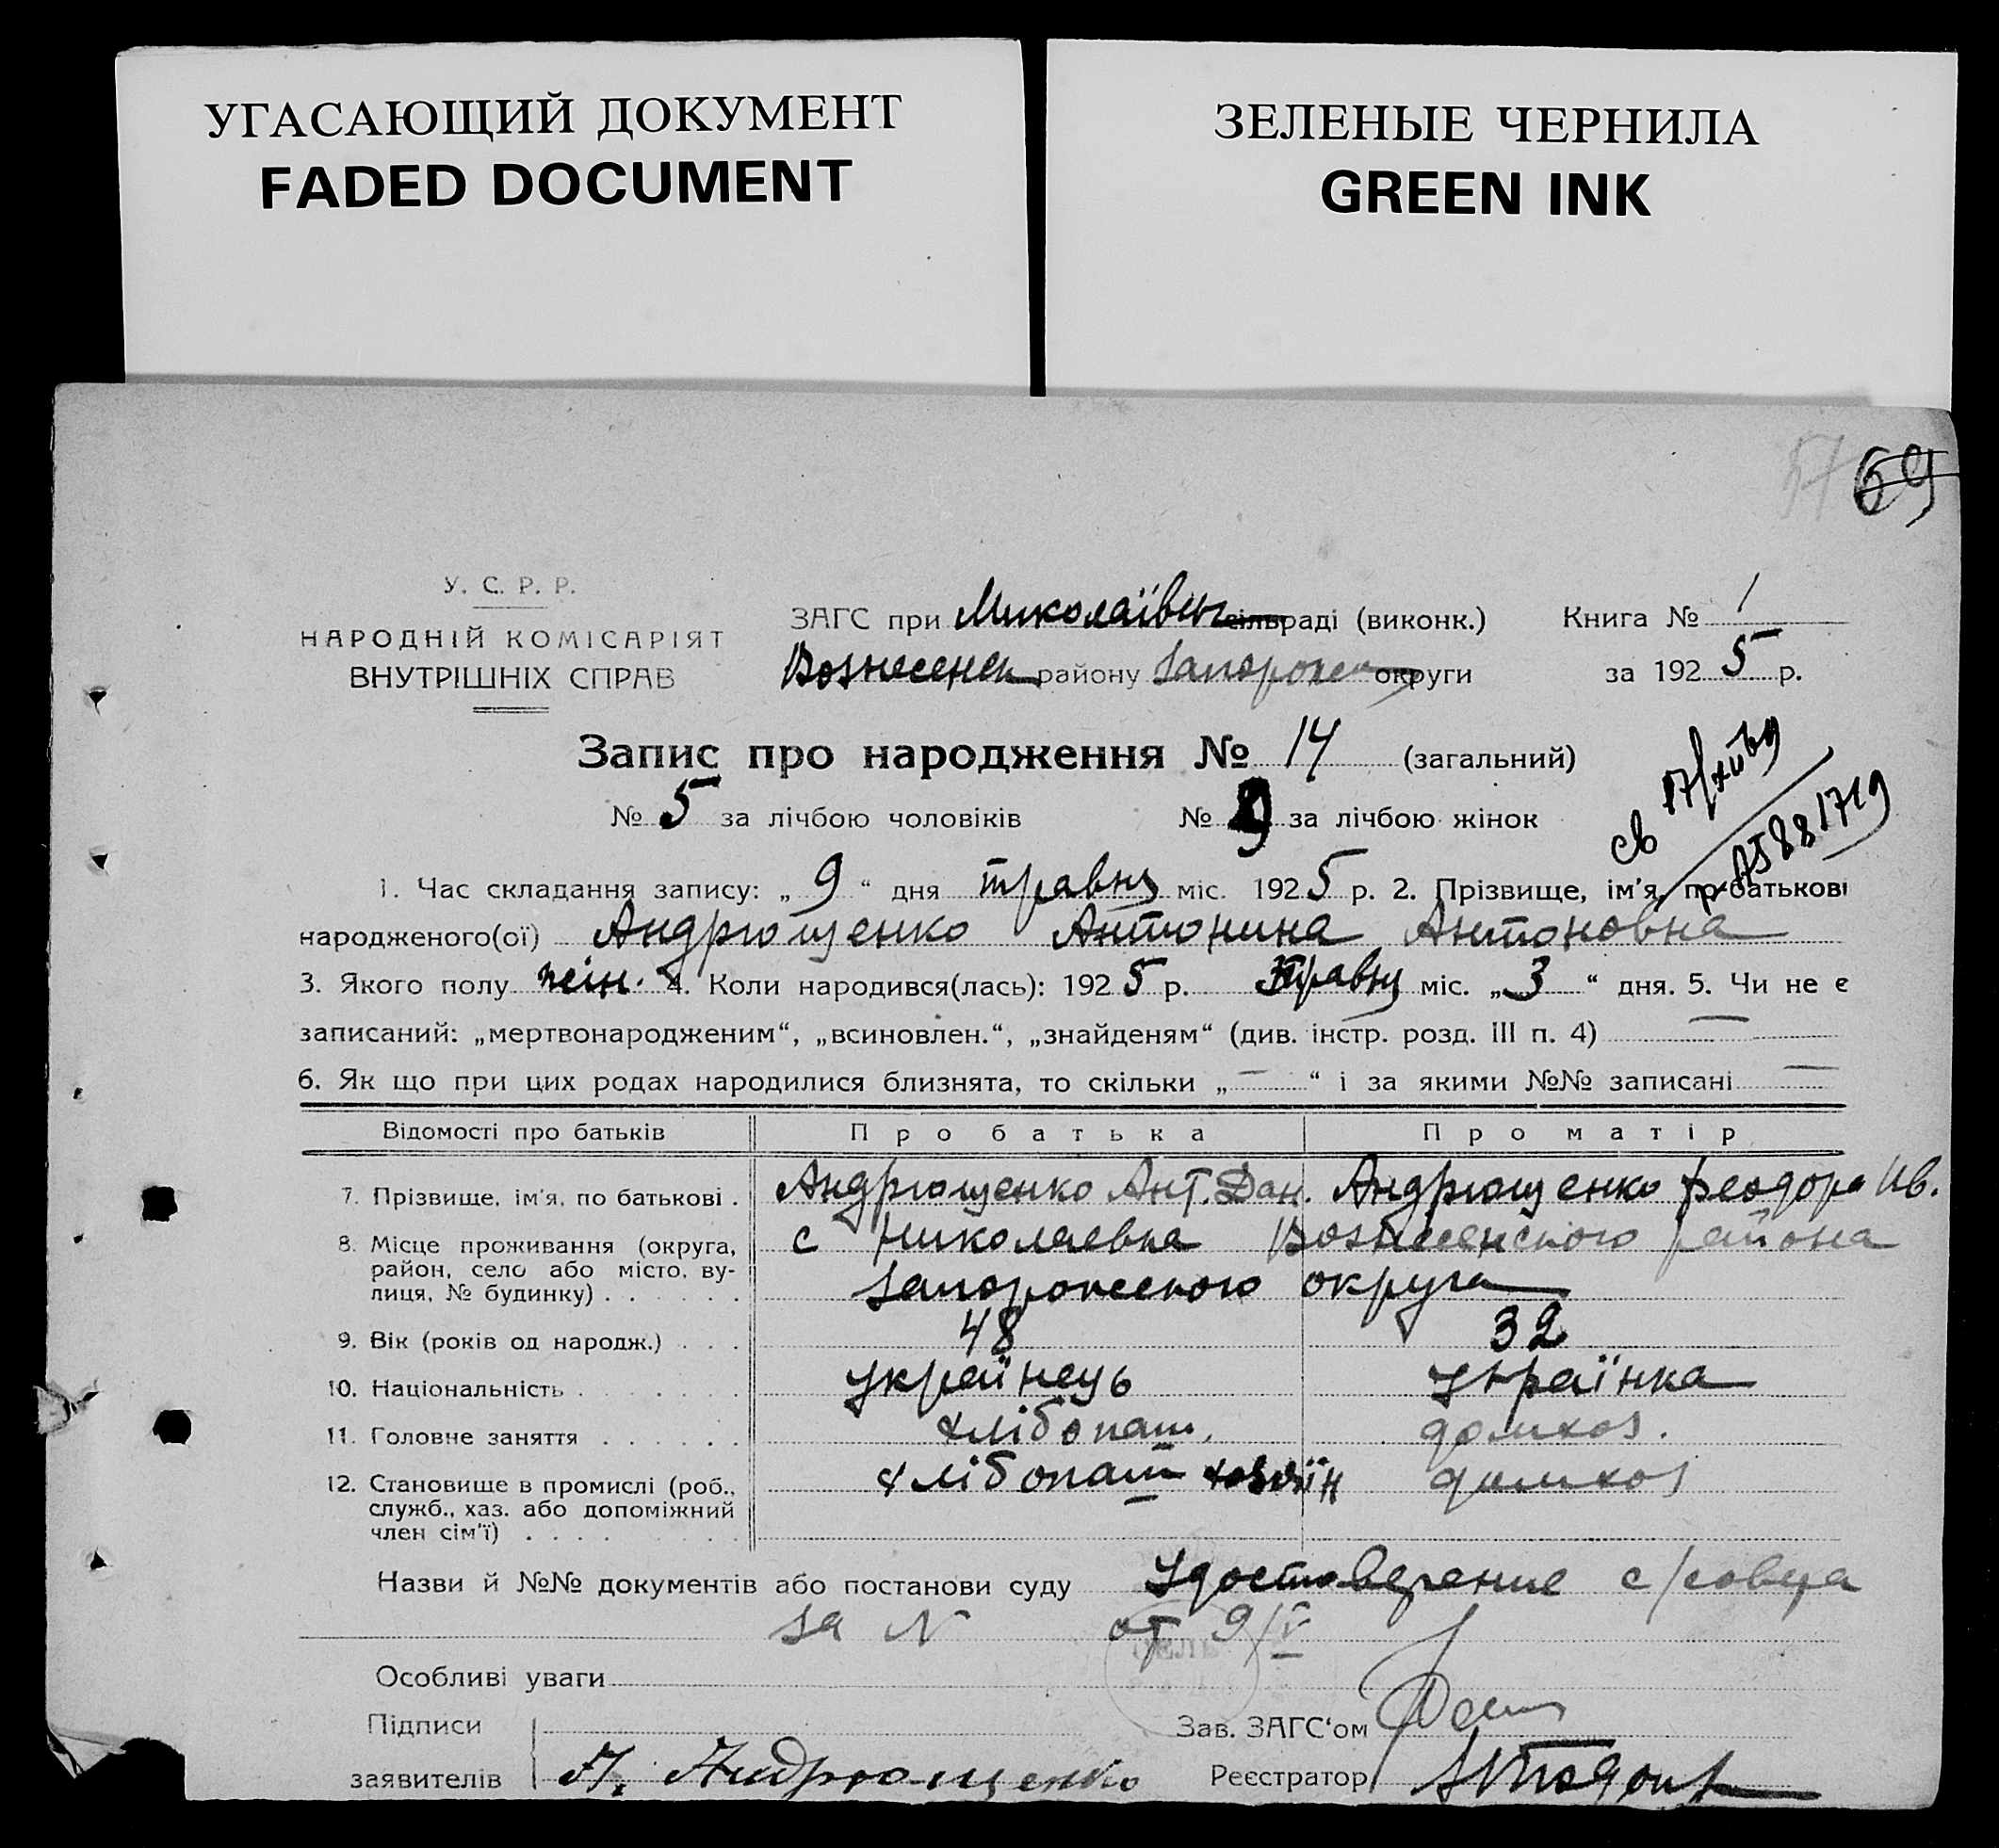 УГАСАЮЩИЙ ДОКУМЕНТ
FADED DOCUMENT
ЗЕЛЕНЫЕ ЧЕРНИЛА
GREEN INK
57 69
У. С. Р. Р.
НАРОДНІЙ КОМІСАРІЯТ
ВНУТРІШНІХ СПРАВ
ЗАГС при Миколаївськ сільраді (виконк.) Книга № 1
Вознесенськ району Запорожск округи за 1925 р.
Запис про народження № 14 (загальний)
№ 5 за лічбою чоловіків № 9 за лічбою жінок
св
1. Час складання запису: „ 9 “ дня травня міс. 1925 р. 2. Прізвище, ім'я, по батькові
народженого(ої) Андрющенко Антонина Антоновна
3. Якого полу жін. 4. Коли народився(лась): 1925 р. травня міс. „ 3 “ дня. 5. Чи не є
записаний: „мертвонародженим“, „всиновлен.“, „знайденям“ (див. інстр. розд. III п. 4) —
6. Як що при цих родах народилися близнята, то скільки „ — “ і за якими №№ записані —
Відомості про батьків Про батька Про матір
7. Прізвище, ім'я, по батькові . Андрющенко Ант. Дан. Андрющенко Феодора Ив.
8. Місце проживання (округа, с Николаевка Вознесенского района
район, село або місто, ву-
лиця, № будинку) . . . . . . Запорожского округа
9. Вік (років од народж.) . . . 48 32
10. Національність . . . . . . . українець українка
11. Головне заняття . . . . . . хлібопаш. домхоз.
12. Становище в промислі (роб., хлібопаш хозяїн домхоз
служб., хаз. або допоміжний
член сім'ї) . . . .
Назви й №№ документів або постанови суду Удостоверение с/совета
за N от 9/V
Особливі уваги
Підписи
Зав. ЗАГС'ом
заявителів А. Андрющенко Реєстратор